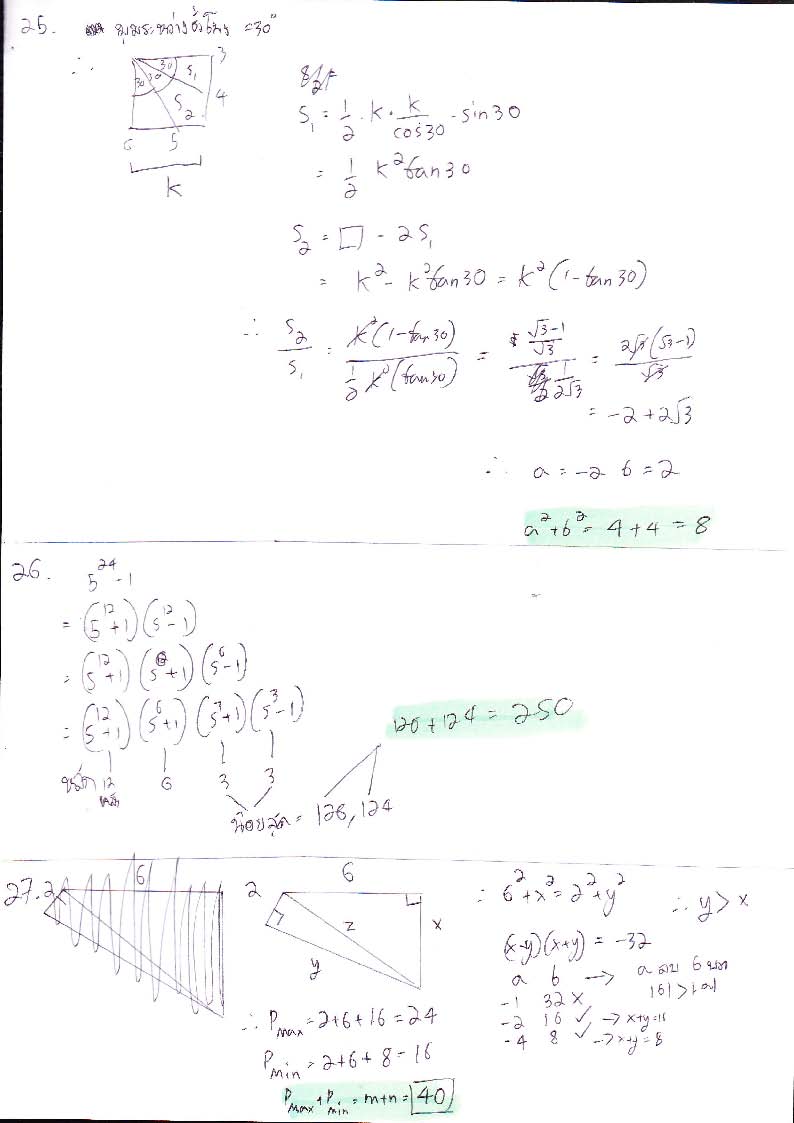 25. มุมระหว่างชั่วโมง = 30°
∴ 30 30 30 S₁ S₂ 3 4 5 6 k
S₁ = 1/2 · k · k/cos30 · sin30
= 1/2 k² tan30
S₂ = □ - 2S₁
= k² - k² tan30 = k²(1 - tan30)
∴ S₂/S₁ = k²(1 - tan30) / (1/2 k²(tan30)) = ((√3-1)/√3) / (1/(2√3)) = 2√3(√3-1)/√3
= -2 + 2√3
∴ a = -2 b = 2
a² + b² = 4 + 4 = 8
26. 5²⁴ - 1
= (5¹² + 1)(5¹² - 1)
= (5¹² + 1)(5⁶ + 1)(5⁶ - 1)
= (5¹² + 1)(5⁶ + 1)(5³ + 1)(5³ - 1)
12 6 3 3
หลัก
น้อยสุด = 126, 124
126 + 124 = 250
27. 2 6
2 6 x y z
∴ 6² + x² = 2² + y² ∴ y > x
(x-y)(x+y) = -32
a b → a ลบ b บวก
|b| > |a|
-1 32 ×
-2 16 ✓ → x+y=16
-4 8 ✓ → x+y=8
∴ Pmax = 2+6+16 = 24
Pmin = 2+6+8 = 16
Pmax + Pmin = m+n = 40